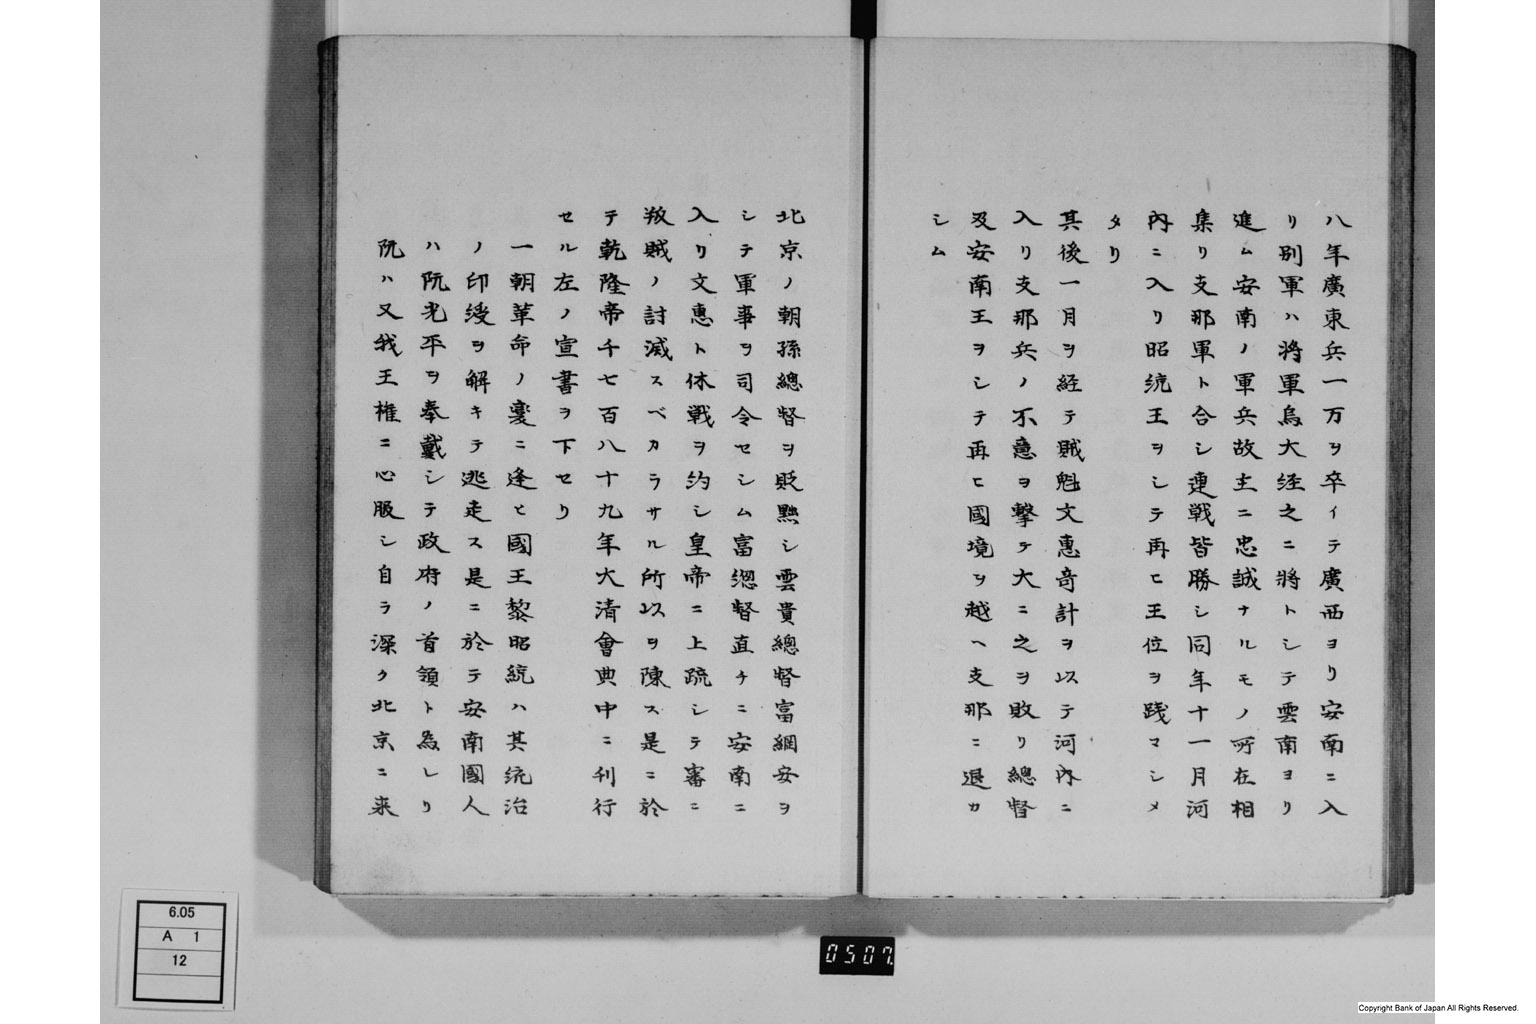 八年廣東兵一万ヲ卒イテ廣西ヨリ安南ニ入
リ別軍ハ將軍烏大経之ニ將トシテ雲南ヨリ
進ム安南ノ軍兵故主ニ忠誠ナルモノ所在相
集リ支那軍ト合シ連戦皆勝シ同年十一月河
内ニ入リ昭統王ヲシテ再ヒ王位ヲ践マシメ
タリ
其後一月ヲ経テ賊魁文惠竒計ヲ以テ河内ニ
入リ支那兵ノ不意ヲ撃テ大ニ之ヲ敗リ總督
及安南王ヲシテ再ヒ國境ヲ越ヘ支那ニ退カ
シム
北京ノ朝孫總督ヲ貶黜シ雲貴總督富綱安ヲ
シテ軍事ヲ司令セシム富總督直チニ安南ニ
入リ文惠ト休戦ヲ約シ皇帝ニ上疏シテ審ニ
叛賊ノ討滅スベカラサル所以ヲ陳ス是ニ於
テ乾隆帝千七百八十九年大清會典中ニ刊行
セル左ノ宣書ヲ下セリ
一朝革命ノ変ニ逢ヒ國王黎昭統ハ其統治
ノ印綬ヲ解キテ逃走ス是ニ於テ安南國人
ハ阮光平ヲ奉戴シテ政府ノ首領ト為レリ
阮ハ又我王権ニ心服シ自ラ深ク北京ニ来
6.05
A 1
12
0507
Copyright Bank of Japan All Rights Reserved.